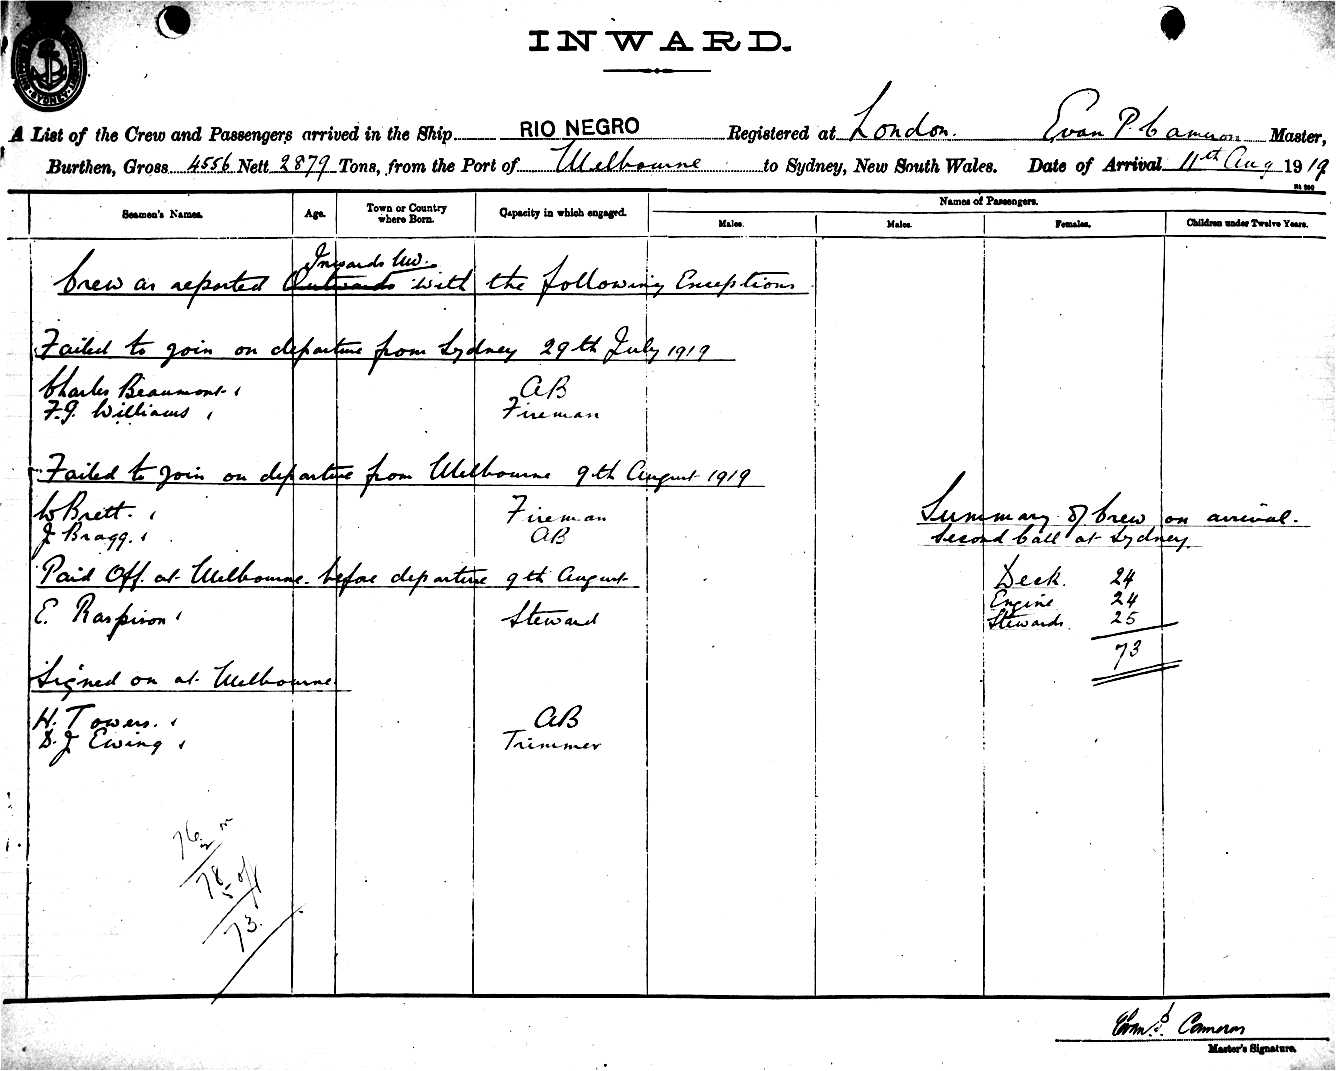 INWARD.
SYDNEY
A List of the Crew and Passengers arrived in the Ship RIO NEGRO Registered at London. Evan P. Cameron Master,
Burthen, Gross 4556 Nett 2879 Tons, from the Port of Melbourne to Sydney, New South Wales. Date of Arrival 11th Aug 1919
Seamen's Names. Age. Town or Country where Born. Capacity in which engaged. Names of Passengers.
Males. Males. Females. Children under Twelve Years.
Inwards
Crew as reported Outwards with the following Exceptions
Failed to join on departure from Sydney 29th July 1919
Charles Beaumont AB
F.J. Williams Fireman
Failed to join on departure from Melbourne 9th August 1919
W Brett. Fireman
J Bragg. AB
Summary of Crew on arrival.
Second Call at Sydney
Paid Off at Melbourne before departure 9th August
Deck. 24
Engine 24
E. Raspison Steward
Stewards. 25
73
Signed on at Melbourne
H. Towers. AB
D. J Ewing Trimmer
76
2
78
5 off
73.
Evan P. Cameron
Master's Signature.